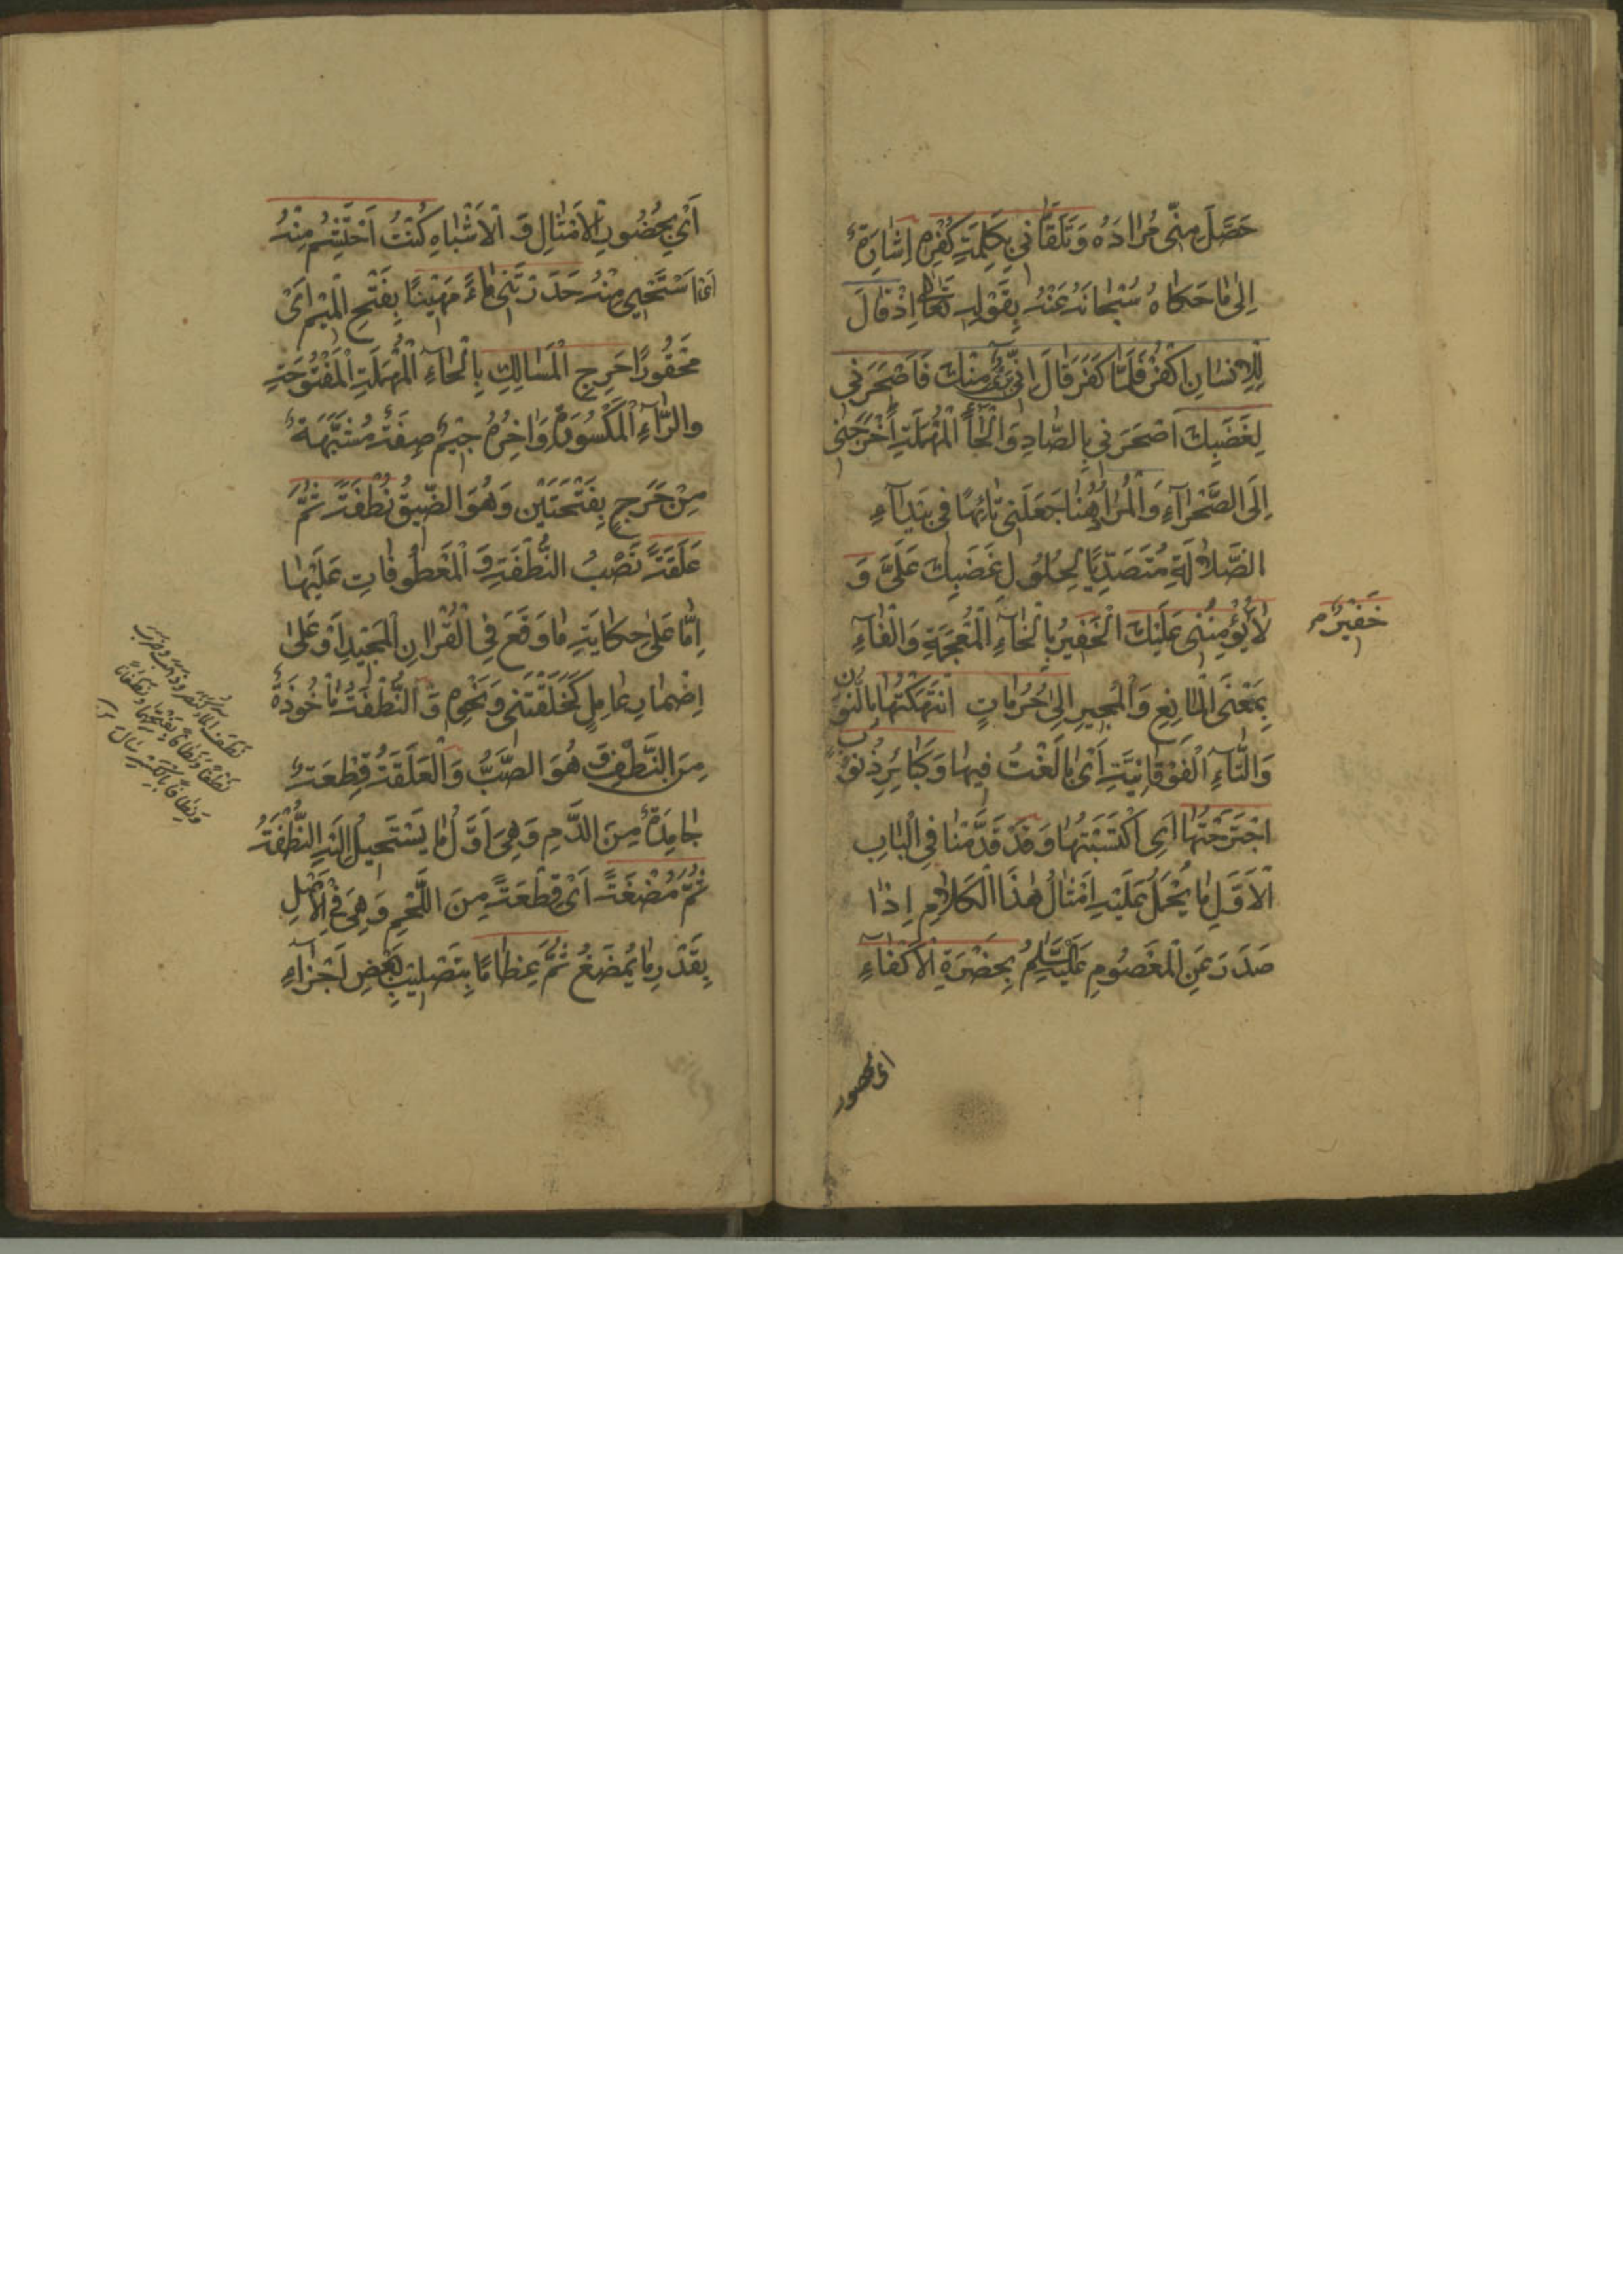 حَصَّلَ مِنّي مُرادَهُ وَتَلَقّاني بِكَلِمَةِ كُفْرِهِ اِشارَةٌ
اِلىٰ ما حَكاهُ سُبْحانَهُ عَنْهُ بِقَوْلِهِ تَعالىٰ اِذْ قالَ
لِلْاِنْسانِ اكْفُرْ فَلَمّا كَفَرَ قالَ اِنّي بَرِئٌ مِنْكَ فَاَصْحَرَني
لِغَضَبِكَ اَصْحَرَني بِالصّادِ وَالْحآءِ الْمُهْمَلَةِ اَخْرَجَني
اِلَى الصَّحْرآءِ وَالْمُرادُ هُنا جَعَلَني تائِهًا في بَيْدآءِ
الضَّلالَةِ مُتَصَدِّيًا لِحُلُولِ غَضَبِكَ عَلَيَّ وَ
لا يُؤْمِنُني عَلَيْكَ الْخَفيرُ بِالْخآءِ الْمُعْجَمَةِ وَالْفآءِ
خَفيرٌ م
بِمَعْنَى الْمانِعِ وَالْمُجيرِ اِلىٰ حُرُماتٍ انْتَهَكْتُها بِالنُّونِ
وَالتّآءِ الْفَوْقانِيَّةِ اَيْ بالَغْتُ فيها وَكَبائِرِ ذُنُوبٍ
اجْتَرَحْتُها اَيِ اكْتَسَبْتُها وَقَدْ قَدَّمْنا في الْبابِ
الْاَوَّلِ ما يُحْمَلُ عَلَيْهِ اَمْثالُ هٰذَا الْكَلامِ اِذا
صَدَرَ عَنِ الْمَعْصُومِ عَلَيْهِ السَّلامُ بِحَضْرَةِ الْاَكْفآءِ
اى بحضور
اَيْ بِحُضُورِ الْاَمْثالِ وَ الْاَشْباهِ كُنْتُ اَحْتَشِمُ مِنْهُ
اَيْ اَسْتَحْيي مِنْهُ حَدَرْتَني مآءً مَهينًا بِفَتْحِ الْميمِ اَيْ
مَحْقُورًا حَرِجِ الْمَسالِكِ بِالْحآءِ الْمُهْمَلَةِ الْمَفْتُوحَةِ
والرّآءِ الْمَكْسُورَةِ وَاخِرُهُ جيمٌ صِفَةٌ مُشَبَّهَةٌ
مِنْ حَرَجٍ بِفَتْحَتَيْنِ وَهُوَ الضّيقُ نُطْفَةً ثُمَّ
عَلَقَةً نَصْبُ النُّطْفَةِ وَ الْمَعْطُوفاتِ عَلَيْها
اِمّا عَلىٰ حِكايَةِ ما وَقَعَ فِي الْقُرْانِ الْمَجيدِ اَوْ عَلىٰ
اِضْمارِ عامِلٍ كَخَلَقْتَني وَنَحْوِهِ وَ النُّطْفَةُ مَأْخُوذَةٌ
مِنَ النَّطْفِ وَ هُوَ الصَّبُّ وَ الْعَلَقَةُ قِطْعَةٌ
جامِدَةٌ مِنَ الدَّمِ وَهِيَ اَوَّلُ ما يَسْتَحيلُ اِلَيْهِ النُّطْفَةُ
ثُمَّ مُضْغَةً اَيْ قِطْعَةً مِنَ اللَّحْمِ وَهِيَ فِي الْاَصْلِ
بِقَدْرِ ما يُمْضَغُ ثُمَّ عِظامًا بِتَصْليبِ بَعْضِ اَجْزآءِ